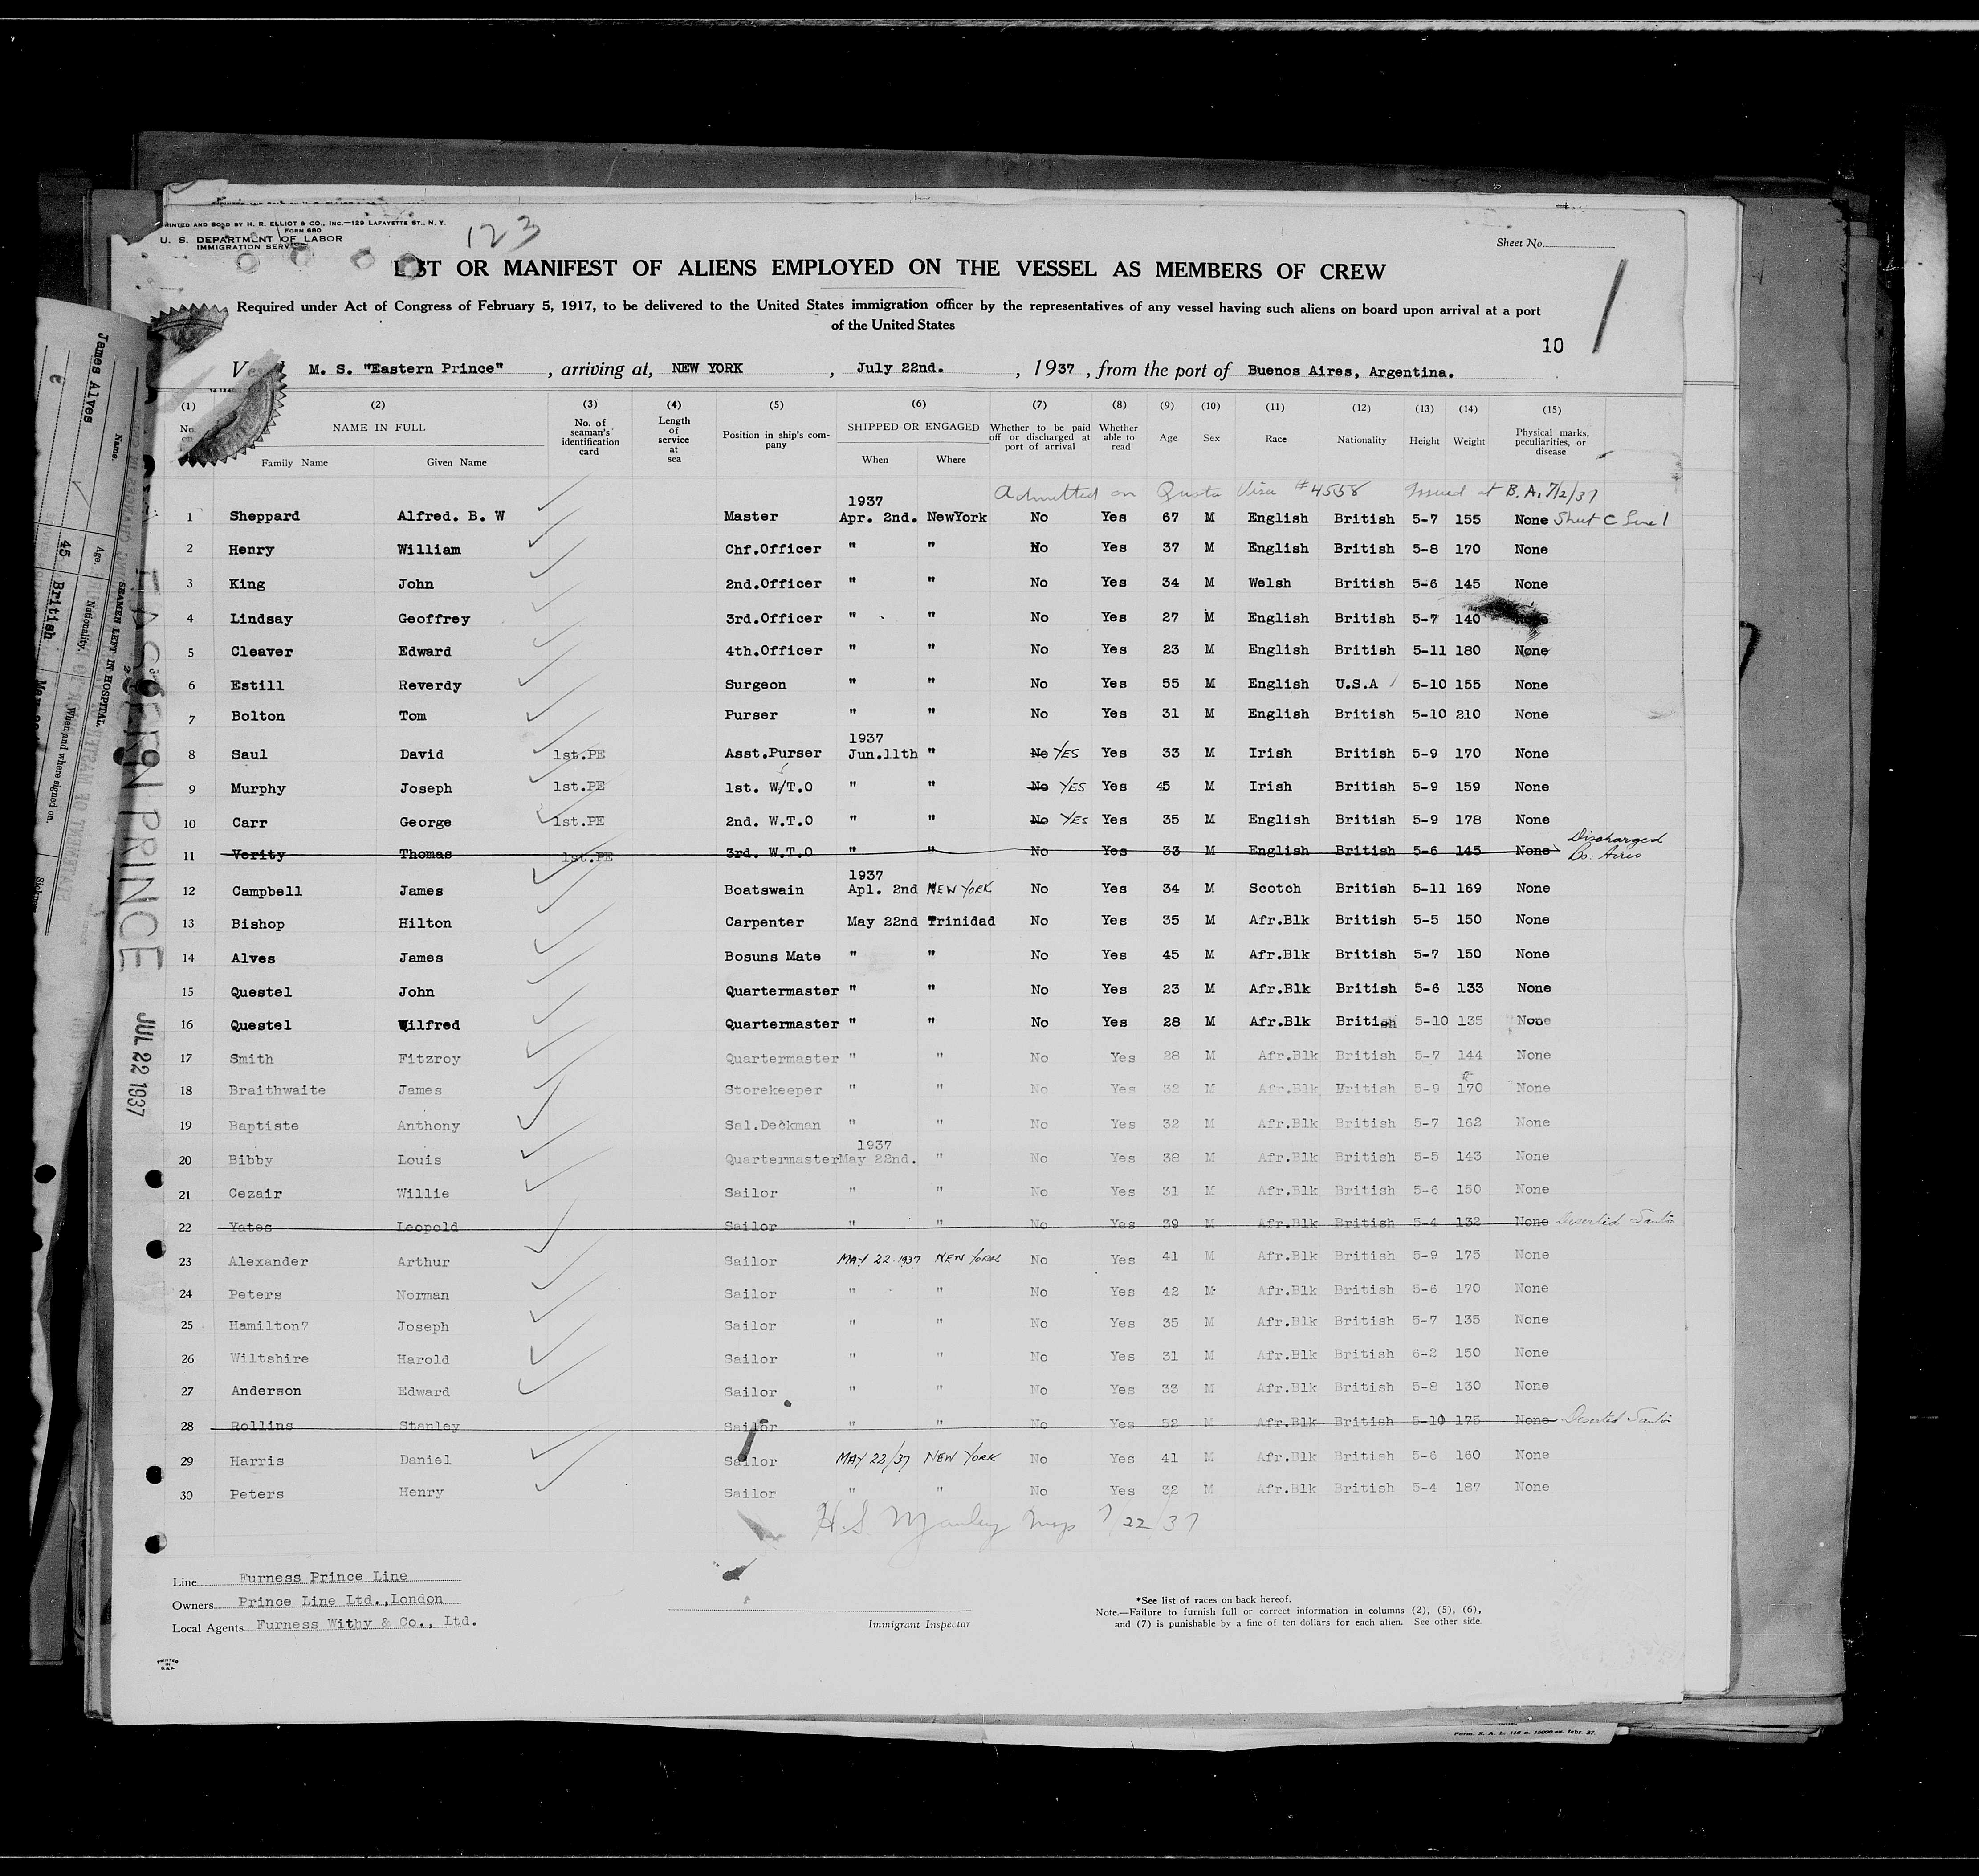 PRINTED AND SOLD BY H. R. ELLIOT & CO., INC.—129 LAFAYETTE ST., N. Y.
FORM 680
U. S. DEPARTMENT OF LABOR
IMMIGRATION SERVICE
123
Sheet No.
LIST OR MANIFEST OF ALIENS EMPLOYED ON THE VESSEL AS MEMBERS OF CREW
Required under Act of Congress of February 5, 1917, to be delivered to the United States immigration officer by the representatives of any vessel having such aliens on board upon arrival at a port
of the United States
10
Vessel M. S. "Eastern Prince" , arriving at, NEW YORK , July 22nd. , 1937 , from the port of Buenos Aires, Argentina.
(1) (2) (3) (4) (5) (6) (7) (8) (9) (10) (11) (12) (13) (14) (15)
No. on NAME IN FULL Family Name Given Name No. of seaman's identification card Length of service at sea Position in ship's company SHIPPED OR ENGAGED When Where Whether to be paid off or discharged at port of arrival Whether able to read Age Sex Race Nationality Height Weight Physical marks, peculiarities, or disease
Admitted on Quota Visa #4558 Issued at B.A. 7/2/37
1937
1 Sheppard Alfred. B. W Master Apr. 2nd. NewYork No Yes 67 M English British 5-7 155 None Sheet C Line 1
2 Henry William Chf.Officer " " No Yes 37 M English British 5-8 170 None
3 King John 2nd.Officer " " No Yes 34 M Welsh British 5-6 145 None
4 Lindsay Geoffrey 3rd.Officer " " No Yes 27 M English British 5-7 140 None
5 Cleaver Edward 4th.Officer " " No Yes 23 M English British 5-11 180 None
6 Estill Reverdy Surgeon " " No Yes 55 M English U.S.A 5-10 155 None
7 Bolton Tom Purser " " No Yes 31 M English British 5-10 210 None
1937
8 Saul David 1st.PE Asst.Purser Jun.11th " No YES Yes 33 M Irish British 5-9 170 None
9 Murphy Joseph 1st.PE 1st. W/T.O " " No YES Yes 45 M Irish British 5-9 159 None
10 Carr George 1st.PE 2nd. W.T.O " " No YES Yes 35 M English British 5-9 178 None
11 Verity Thomas 1st.PE 3rd. W.T.O " " No Yes 33 M English British 5-6 145 None Discharged Bs. Aires
1937
12 Campbell James Boatswain Apl. 2nd NEW YORK No Yes 34 M Scotch British 5-11 169 None
13 Bishop Hilton Carpenter May 22nd Trinidad No Yes 35 M Afr.Blk British 5-5 150 None
14 Alves James Bosuns Mate " " No Yes 45 M Afr.Blk British 5-7 150 None
15 Questel John Quartermaster " " No Yes 23 M Afr.Blk British 5-6 133 None
16 Questel Wilfred Quartermaster " " No Yes 28 M Afr.Blk British 5-10 135 None
17 Smith Fitzroy Quartermaster " " No Yes 28 M Afr.Blk British 5-7 144 None
18 Braithwaite James Storekeeper " " No Yes 32 M Afr.Blk British 5-9 170 None
19 Baptiste Anthony Sal.Deckman " " No Yes 32 M Afr.Blk British 5-7 162 None
1937
20 Bibby Louis Quartermaster May 22nd. " No Yes 38 M Afr.Blk British 5-5 143 None
21 Cezair Willie Sailor " " No Yes 31 M Afr.Blk British 5-6 150 None
22 Yates Leopold Sailor " " No Yes 39 M Afr.Blk British 5-4 132 None Deserted Santos
23 Alexander Arthur Sailor MAY 22.1937 NEW YORK No Yes 41 M Afr.Blk British 5-9 175 None
24 Peters Norman Sailor " " No Yes 42 M Afr.Blk British 5-6 170 None
25 Hamilton7 Joseph Sailor " " No Yes 35 M Afr.Blk British 5-7 135 None
26 Wiltshire Harold Sailor " " No Yes 31 M Afr.Blk British 6-2 150 None
27 Anderson Edward Sailor " " No Yes 33 M Afr.Blk British 5-8 130 None
28 Rollins Stanley Sailor " " No Yes 52 M Afr.Blk British 5-10 175 None Deserted Santos
29 Harris Daniel Sailor MAY 22/37 NEW YORK No Yes 41 M Afr.Blk British 5-6 160 None
30 Peters Henry Sailor " " No Yes 32 M Afr.Blk British 5-4 187 None
H.S. Manley Insp 7/22/37
Line Furness Prince Line
Owners Prince Line Ltd.,London
Local Agents Furness Withy & Co., Ltd.
Immigrant Inspector
*See list of races on back hereof.
Note.—Failure to furnish full or correct information in columns (2), (5), (6),
and (7) is punishable by a fine of ten dollars for each alien. See other side.
PRINTED IN U.S.A.
Form. S. A. L. 116 a. 15000 ex. febr. 37.
EASTERN PRINCE
JUL 22 1937
SEAMEN LEFT IN HOSPITAL
Name.
Age.
Nationality.
When and where signed on.
James Alves
45
British